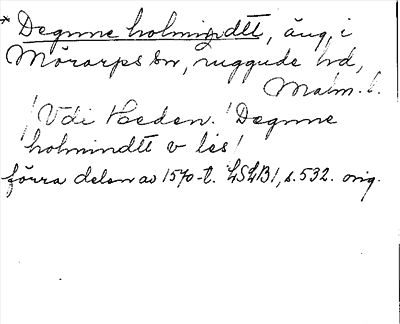 * Degnne holmindtt, äng, i
Mörarps sn, ruggude hd,
Malm. l.
! Vdi Heden. ! Degnne
holmindtt v les !
förra delen av 1570-t. LSLB1, s. 532. orig.